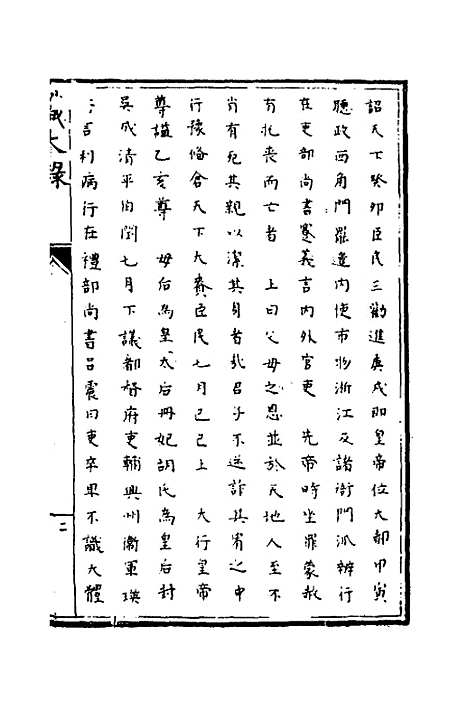 詔天下癸卯臣民三勸進庚戌即皇帝位大都甲寅
聽政西角門罷遣內使市物浙江及諸衙門派辦行
在吏部尚書蹇義言內外官吏 先帝時坐罪蒙赦
有北喪而亡者 上曰父母之恩並於天地人至不
肖有死其親以潔其身者哉君子不逆詐其宥之中
行豫俻合天下大賚臣民七月己巳上 大行皇帝
尊謚乙亥尊 母后為皇太后冊妃胡氏為皇后封
吳成清平伯閏七月下議都督府吏輔興州衞軍瑛
言吉利病行在禮部尚書呂震曰吏卒畢不識大體
大錄
二